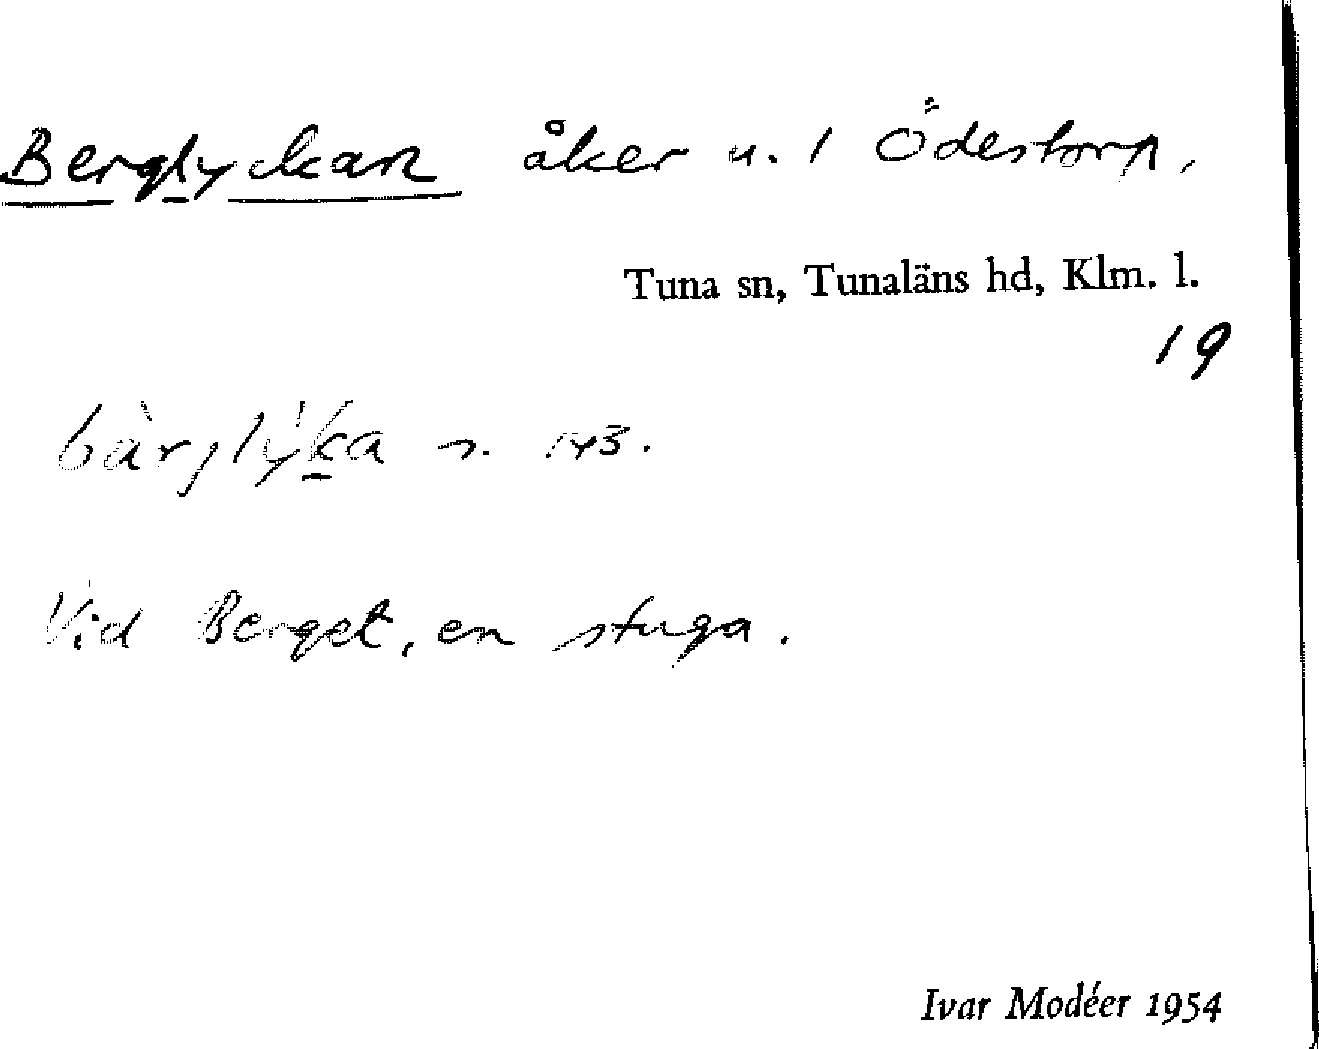 Berglyckan åker u. 1 Ödestorp,
Tuna sn, Tunaläns hd, Klm. l.
19
bàrjlýka n. 143.
Vid Berget, en stuga.
Ivar Modéer 1954